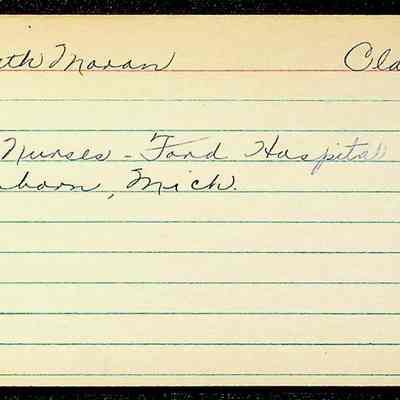 uth Moran Cla
Nurses - Ford Hospital
born, Mich.